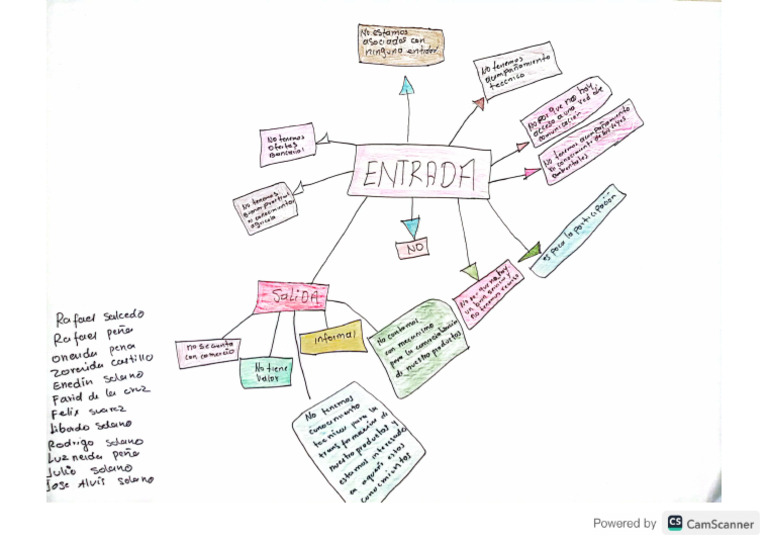 No estamos
asociados con
ninguna entidad
No tenemos
acompañamiento
tecnico
No por que no hay
acceso a una red de
comunicación
No tenemos acompañamiento
ni conocimiento de las leyes
ambientales
No tenemos
ofertas
bancarias
ENTRADA
No tenemos
ni conocimiento
agricola
es poca la participación
NO
No por que no hay
un buen servicio y
no tenemos
SaliDA
no se cuenta
con comercio
No tiene
Valor
informal
No contamos
con mecanismo
para la comercialización
de nuestro productos
No tenemos
conocimiento
tecnicos para la
transformación de
nuestro productos y
estamos interesados
en aquerir estos
conocimientos
Rafael Salcedo
Rafael peña
oneida pena
Zoreida castillo
Enedin Solano
Farid de la cruz
Felix suarez
libardo Solano
Rodrigo Solano
Luz neida peña
Julio Solano
Jose Alvis Solano
Powered by CS CamScanner